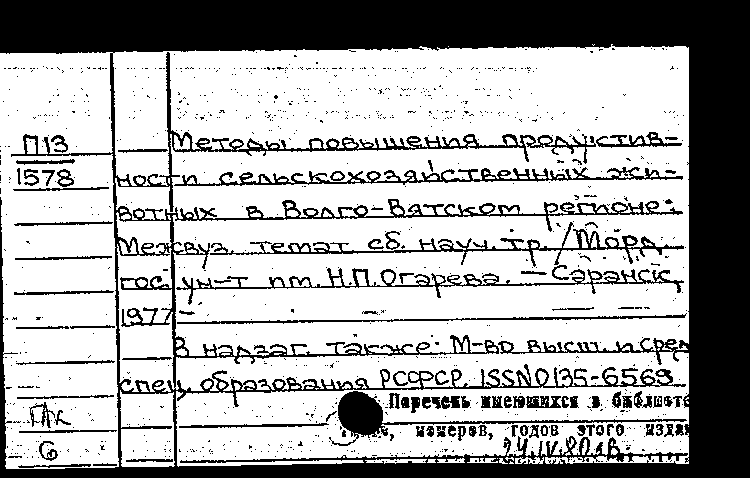 П13
1578
Методы повышения продуктив-
ности сельскохозяйственных жи-
вотных в Волго-Вятском регионе:
Межвуз. темат сб. науч. тр. / Морд.
гос. ун-т им. Н.П.Огарева. — Саранск,
1977 -
В надзаг. также: М-во высш. и сред
спец. образования РСФСР. ISSN 0135-6569
Перечень имеющихся в библиоте
номеров, годов этого изда
24.IV.80
6